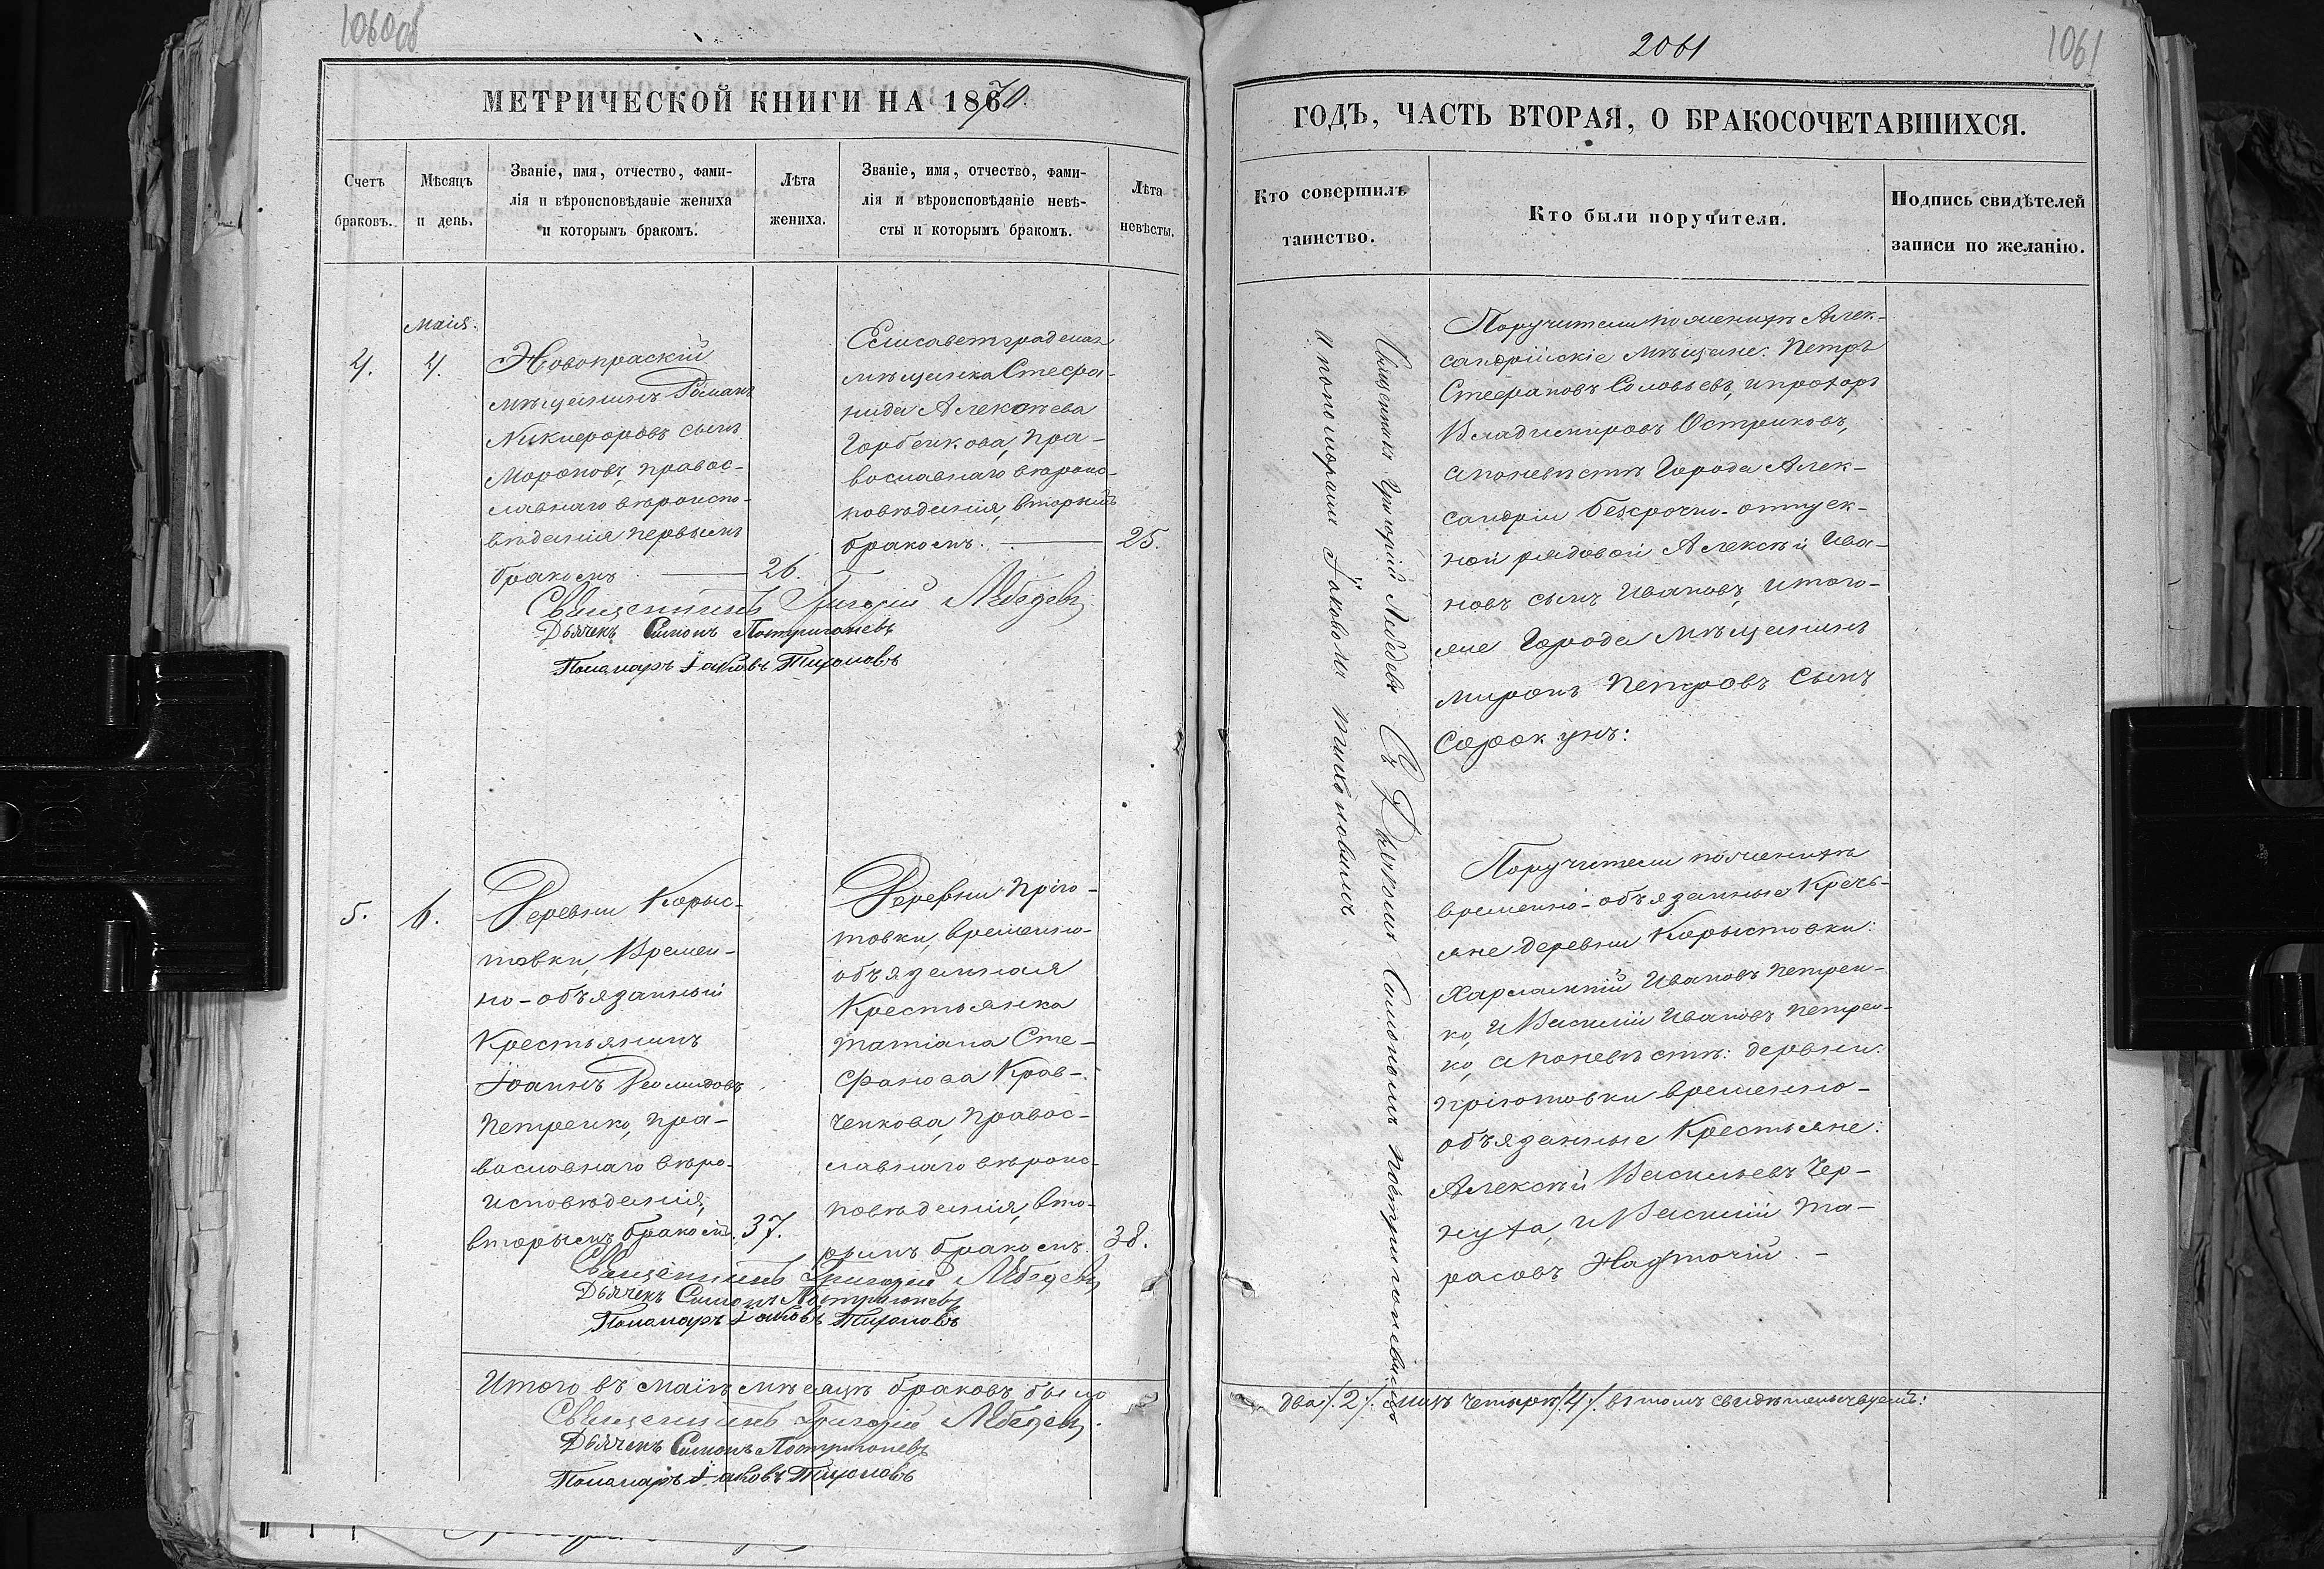 1060об
МЕТРИЧЕСКОЙ КНИГИ НА 1870.
Счетъ
браковъ.
Мѣсяцъ
и день.
Званіе, имя, отчество, фами-
лія и вѣроисповѣданіе жениха
и которымъ бракомъ.
Лѣта
жениха.
Званіе, имя, отчество, фами-
лія и вѣроисповѣданіе невѣ-
сты и которымъ бракомъ.
Лѣта
невѣсты.
Маія.
4.
4.
Новопраскій
мѣщанинъ Романъ
Никифоровъ сынъ
Морозовъ, правос-
лавнаго вѣроиспо-
вѣданія первымъ
бракомъ
26.
Елисаветградская
мѣщанка Стефа-
нида Алексѣева
Горбенкова, пра-
вославнаго вѣроис-
повѣданія, вторымъ
бракомъ.
25.
Священникъ Григорій Лебедевъ
Дьячекъ Симонъ Постригоневъ
Пономарь Іаковъ Тихоновъ
5.
6.
Деревни Корыс-
товки, Времен-
но-обязанный
Крестьянинъ
Іоаннъ Діомидовъ
Петренко, пра-
вославнаго вѣро-
исповѣданія,
вторымъ бракомъ.
37.
Деревни Прію-
товки, временно-
объязанная
Крестьянка
Татіана Сте-
фанова Крав-
ченкова, Правос-
лавнаго вѣроис-
повѣданія, вто-
рымъ бракомъ.
38.
Священникъ Григорій Лебедевъ
Дьячекъ Симонъ Постригоневъ
Пономарь Іаковъ Тихоновъ
Итого въ маіѣ мѣсяцѣ браковъ было
Священникъ Григорій Лебедевъ
Дьячекъ Симонъ Постригоневъ
Пономарь Іаковъ Тихоновъ
2061
1061
ГОДЪ, ЧАСТЬ ВТОРАЯ, О БРАКОСОЧЕТАВШИХСЯ.
Кто совершилъ
таинство.
Кто были поручители.
Подпись свидѣтелей
записи по желанію.
Священникъ Григорій Лебедевъ Съ Дьячкомъ Симономъ Постригоневымъ
и пономаремъ Іаковомъ Тихоновымъ
Поручители по женихѣ Алек-
сандрійскіе мѣщане: Петръ
Стефановъ Соловьевъ, и прохоръ
Владимировъ Остриковъ,
а по невѣстѣ Города Алек-
сандріи безсрочно-отпуск-
ной рядовой Алексѣй Ива-
новъ сынъ Ивановъ, и того-
же Города Мѣщанинъ
Миронъ Петровъ Сынъ
Сорокунъ:
Поручители по женихѣ
временно-объязанные Кресь-
яне деревни Корыстовки:
Харлампій Ивановъ Петрен-
ко, и Василій Ивановъ Петрен-
ко, а по невѣстѣ: деревни
Пріютовки временно-
объязанные Крестьяне:
Алексѣй Васильевъ Чер-
нуха, и Василій Та-
расовъ Настогій.
два /.2/. лицъ четыре /.4/. въ томъ свидѣтельствуемъ: